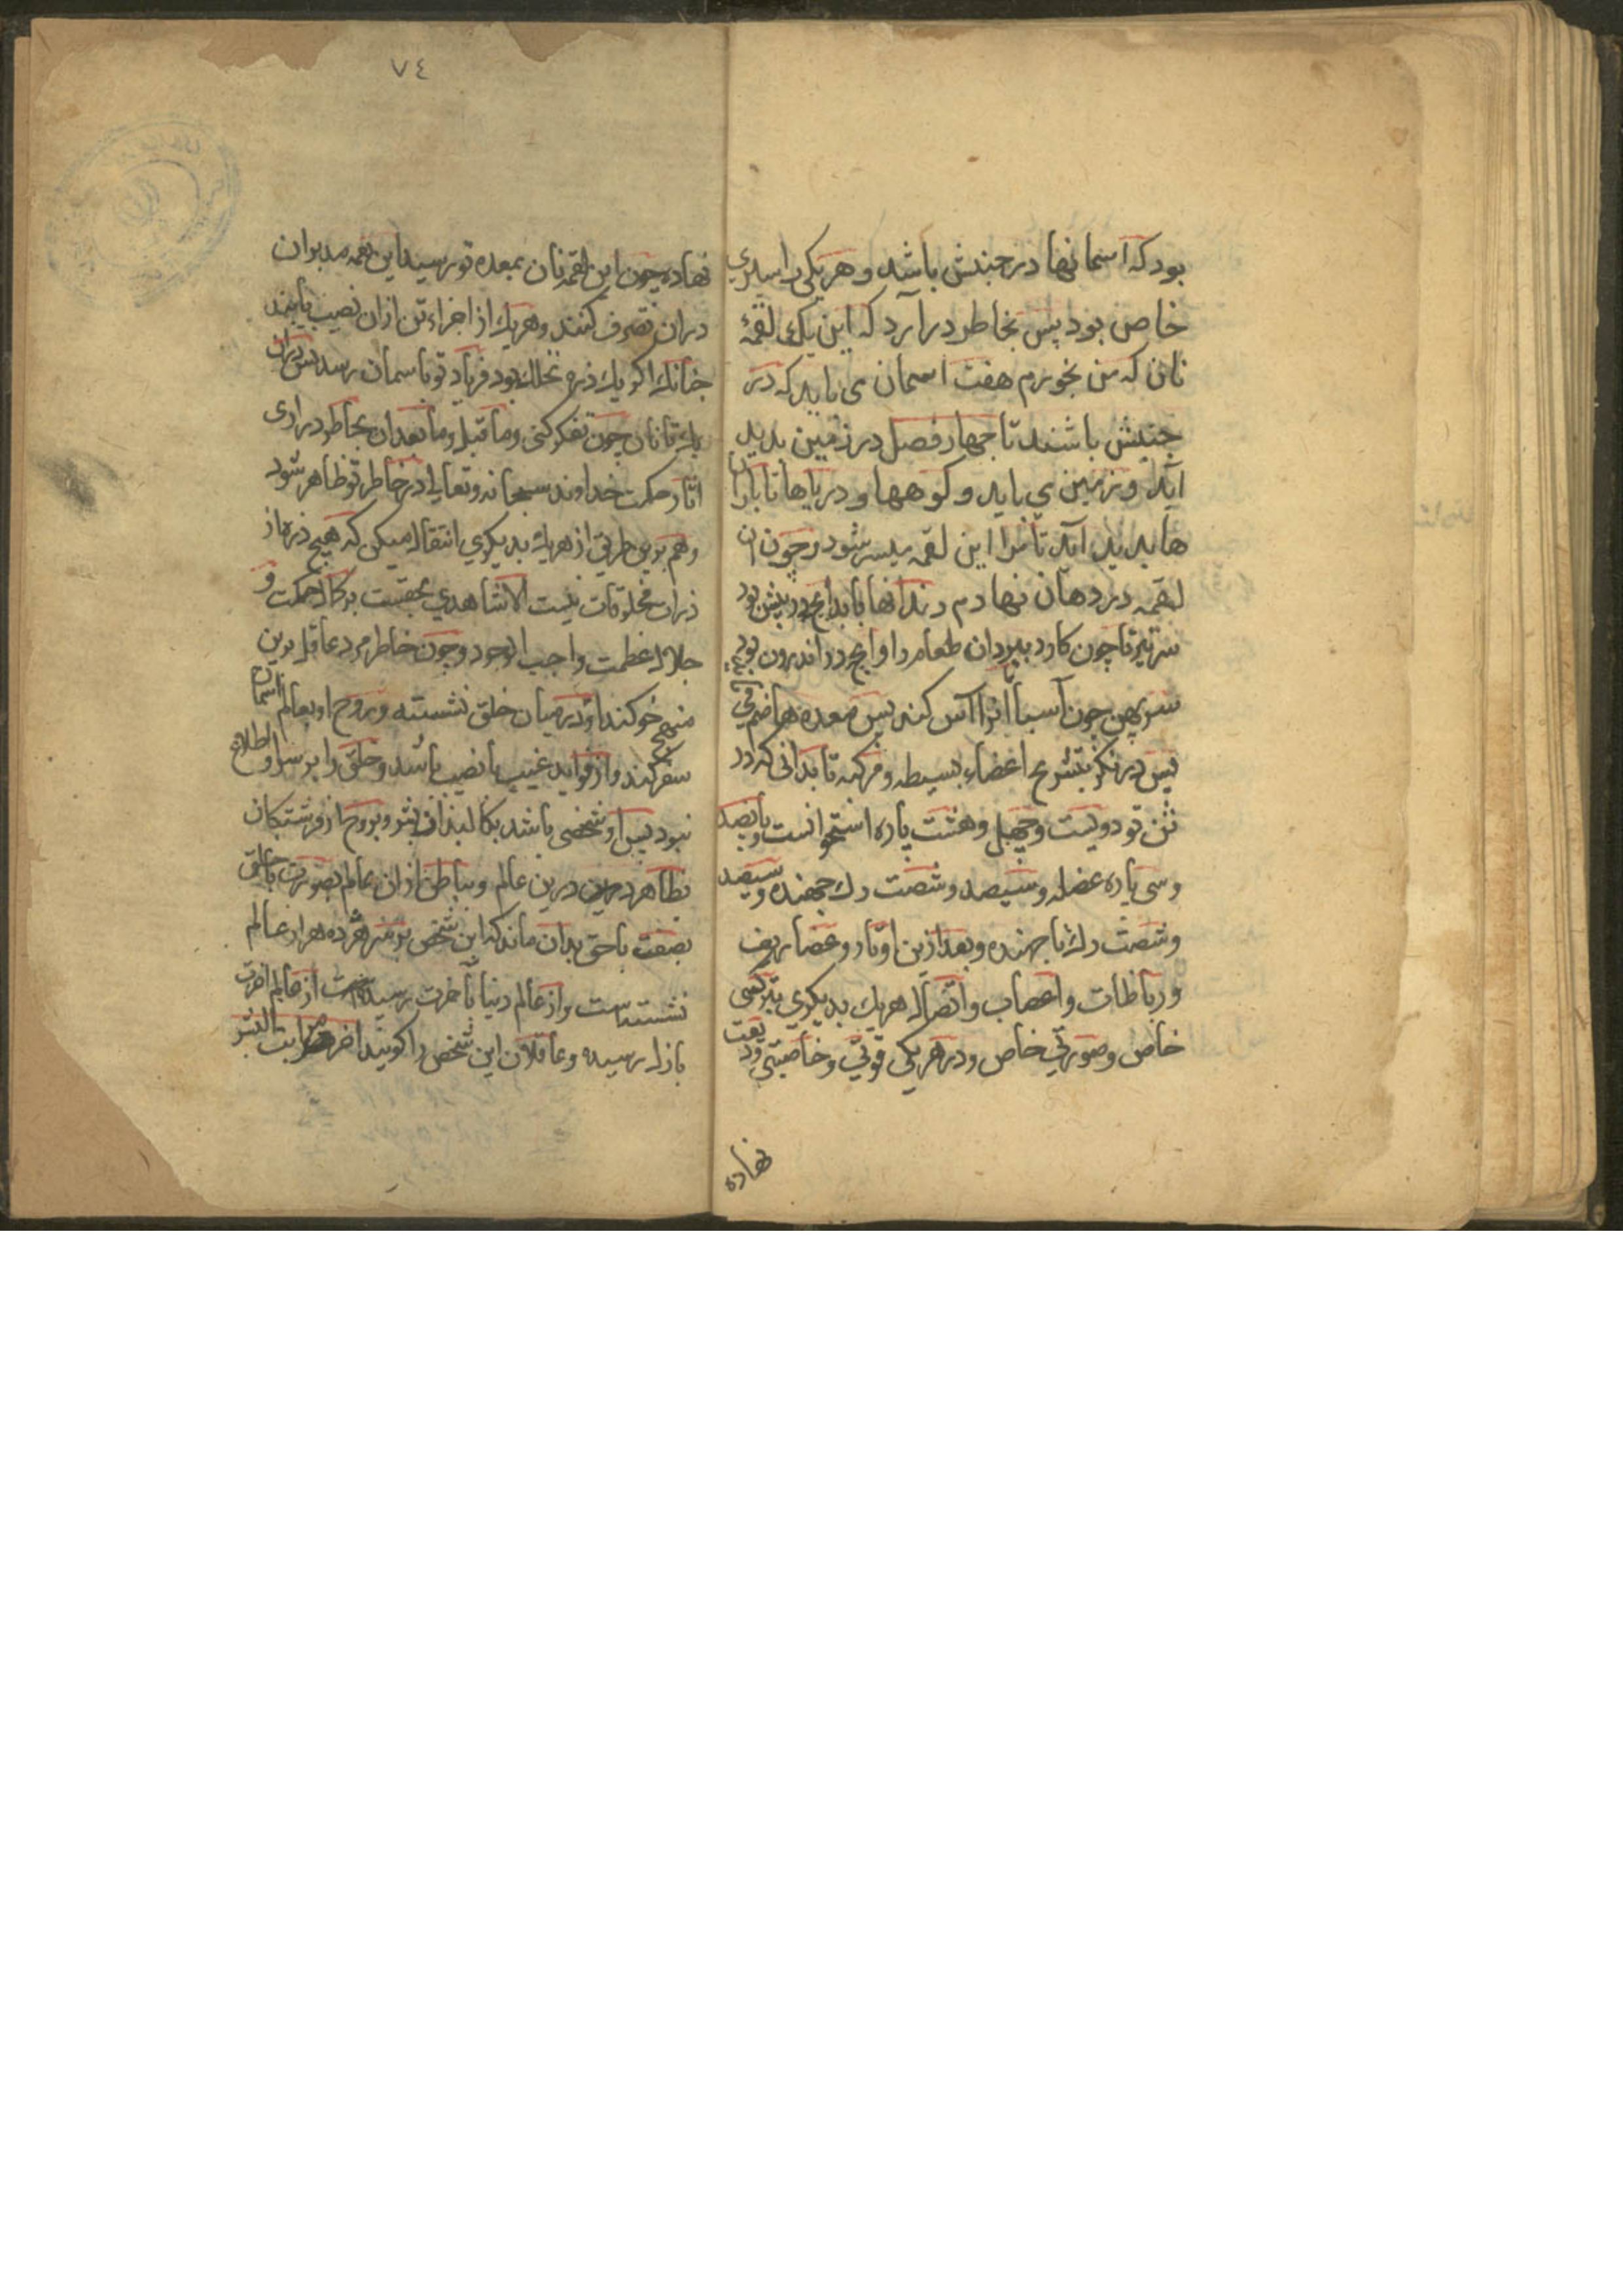 بود که اسمانها در جنبش باشد و هر یکی را سیری
خاص بود پس بخاطر درارد که این یک لقمۀ
نان که من بخورم هفت اسمان می باید که در
جنبش باشند تا چهار فصل در زمین پدید
آید و زمین می باید و کوهها و دریاها تا باران
ها پدید آید تا مرا این لقمه میسر شود و چون ان
لقمه در دهان نهادم دندانها باید انچ در پیش بود
سر تیز تا چون کارد ببرد ان طعام را و انچ در اندرون بود
سر پهن چون آسیا انرا آس کند پس معده هاضم
پس در نکر بتشریح اعضاء بسیطه و مرکبه تا بدانی که در
تن تو دویست و چهل و هشت پاره استخوانست و پانصد
و سی پاره عضله و سیصد و شصت رک جهنده و سیصد
و شصت رک ناجهنده و بعد ازین اوتار و غضاریف
و رباطات و اعصاب و اتصال هر یک بدیکری بترکیبی
خاص و صورتی خاص و در هر یکی قوتی و خاصیتی ودیعت
نهاده
٧٤
نهاده چون این لقمه نان بمعده تو رسید این همه مدبران
دران تصرف کنند و هر یک از اجزاء تن ازان نصیب یابند
جنانک اکر یک ذره بخلل بود فریاد تو باسمان رسد پس دران
یک تا نان چون تفکر کنی و ما قبل و ما بعد ان بخاطر دراری
اثار حکمت خداوند سبحانه و تعالی در خاطر تو ظاهر شود
و هم برین طریق از هر یک بدیکری انتقال میکن که هیچ ذره از
ذرات مخلوقات نیست الا شاهدی بحقیست بر کمال حکمت و
جلال عظمت واجب الوجود و چون خاطر مرد عاقل برین
منهج خو کند او در میان خلق نشسته و روح او بعالم اسمان
سفر کند و از فواید غیب با نصیب باشد و خلق را بر سر او اطلاع
نبود پس او شخصی باشد بکالبد از بشر و بروح از فرشتکان
بظاهر درین عالم و بباطن ازان عالم بصورت با خلق
بصفت با حق بدان ماند که این شخص بر سر هژده هزار عالم
نشستست و از عالم دنیا بآخرت رسیده از عالم اخرت
بازل رسیده و عاقلان این شخص را کویند اخر مراتب البشر